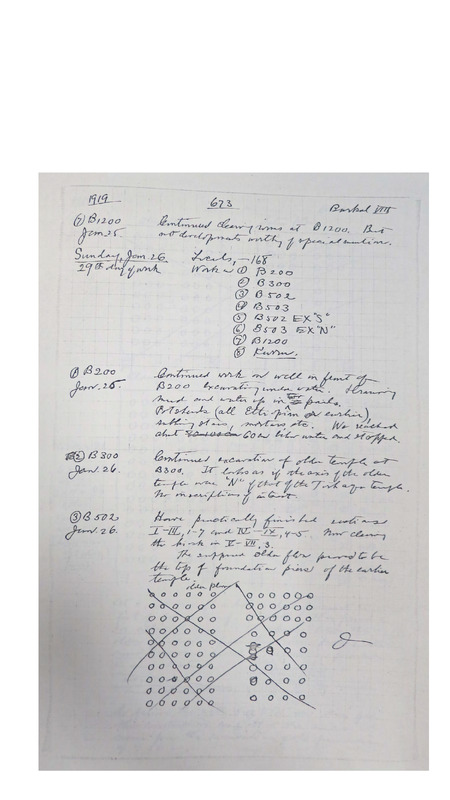 1919
673
Barkal VIII
⑦ B1200 Continued clearing rooms at B1200. But
Jan 25. no developments worthy of special mention.
Sunday, Jan 26. Locals, - 168
29th day of work Work on ① B200
② B300
③ B502
④ B503
⑤ B502 EX "S"
⑥ B503 EX "N"
⑦ B1200
⑧ Kurru.
① B200 Continued work on well in front of
Jan. 26 B200 excavating under water. Drawing
mud and water up in pails.
Potsherds (all Ethiopian or earlier),
rubbing stones, mortars etc. We reached
about 60 cm below water and stopped.
② B300 Continued excavation of older temple at
Jan 26. B300. It looks as if the axis of the older
temple was "N" of that of the Tirhaqa temple.
No inscriptions of interest.
③ B502 Have practically finished sections
Jan. 26. I-III, 1-7 and IV-IX, 4-5. Now clearing
the bricks in V-VII, 3.
The supposed older floor proved to be
the top of foundation piers of the earlier
temple.
older plan